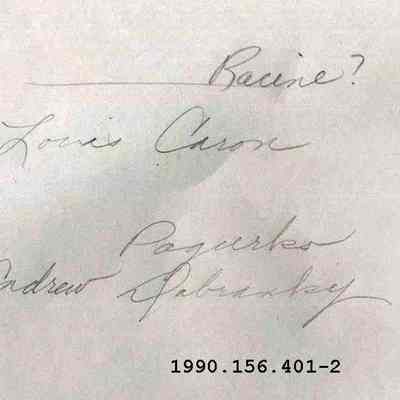 Racine?
Louis Caron
Pagurko
Andrew Dabranky
1990.156.401-2